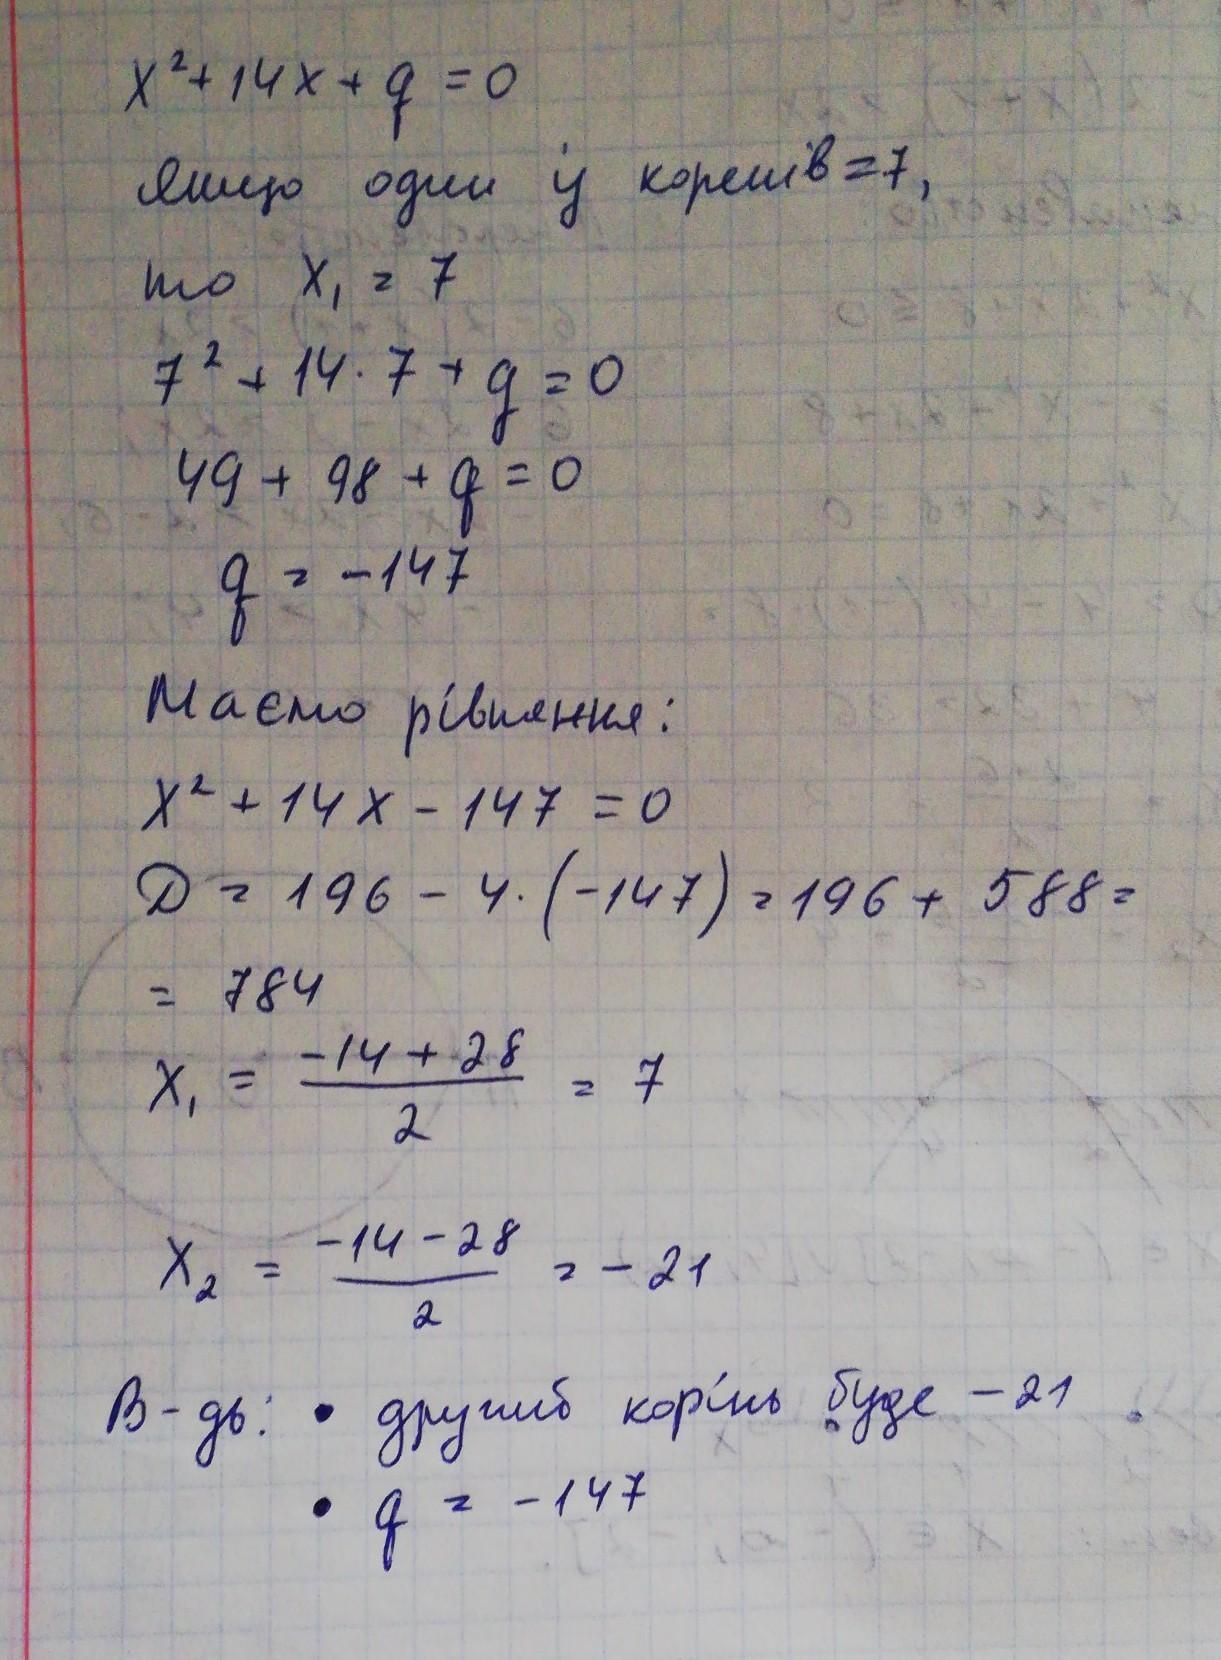 x² + 14x + q = 0
Якщо один із коренів = 7,
то x₁ = 7
7² + 14 · 7 + q = 0
49 + 98 + q = 0
q = -147
Маємо рівняння:
x² + 14x - 147 = 0
D = 196 - 4 · (-147) = 196 + 588 =
= 784
x₁ = (-14 + 28)/2 = 7
x₂ = (-14 - 28)/2 = -21
В-дь: • другий корінь буде -21
• q = -147